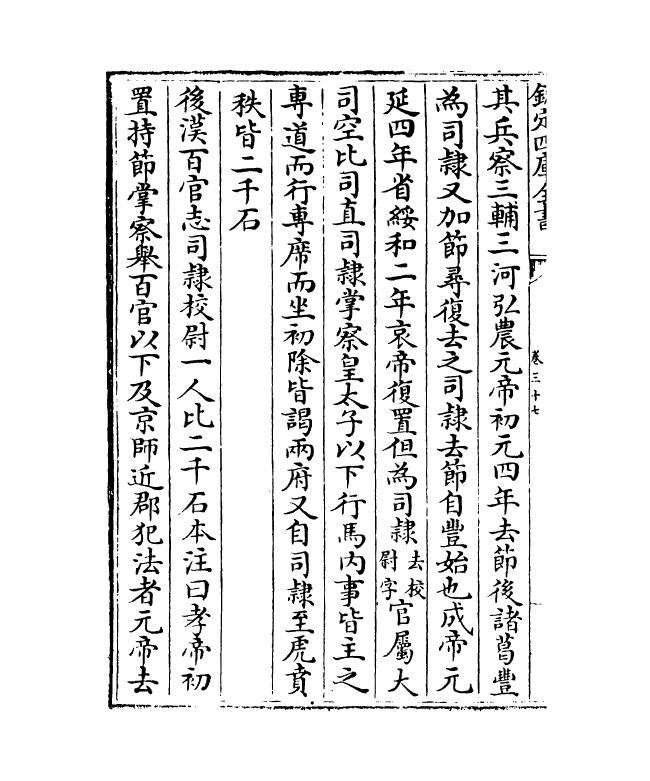 欽定四庫全書
卷三十七
其兵察三輔三河弘農元帝初元四年去節後諸葛豐
為司隸又加節尋復去之司隸去節自豐始也成帝元
延四年省綏和二年哀帝復置但為司隸去校尉字官屬大
司空比司直司隸掌察皇太子以下行馬内事皆主之
専道而行専席而坐初除皆謁兩府又自司隸至虎賁
秩皆二千石
後漢百官志司隸校尉一人比二千石本注曰孝帝初
置持節掌察舉百官以下及京師近郡犯法者元帝去